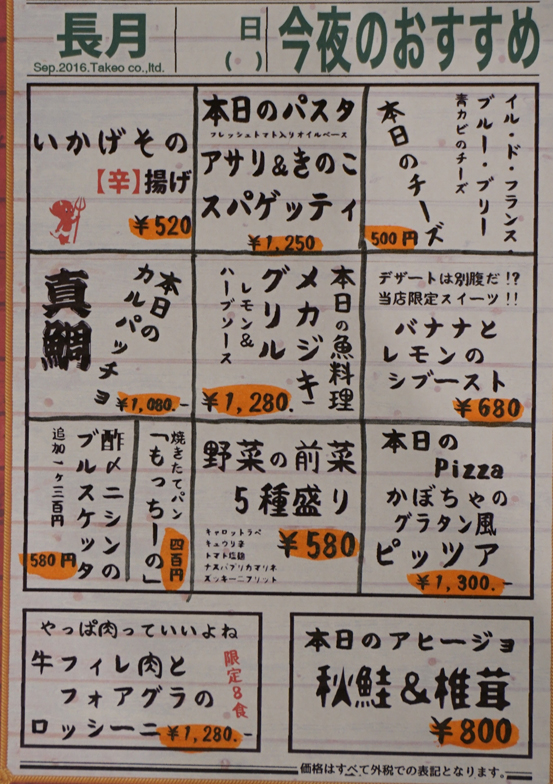 長月
日
( )
今夜のおすすめ
Sep.2016.Takeo co.,ltd.
いかげその
【辛】揚げ
¥520
本日のパスタ
フレッシュトマト入りオイルベース
アサリ&きのこ
スパゲッティ
¥1,250
イル・ド・フランス・
ブルー・ブリー
青カビのチーズ
本日のチーズ
500円
本日の
カルパッチョ
真鯛
¥1,080.-
本日の魚料理
メカジキ
グリル
レモン&
ハーブソース
¥1,280.-
デザートは別腹だ!?
当店限定スイーツ!!
バナナと
レモンの
シブースト
¥680
焼きたてパン
「もっちーの」
四百円
酢〆ニシンの
ブルスケッタ
追加一ヶ三百円
580円
野菜の前菜
5種盛り
キャロットラペ
キュウリ
トマト塩麹
ナスパプリカマリネ
ズッキーニフリット
¥580
本日の
Pizza
かぼちゃの
グラタン風
ピッツァ
¥1,300.-
やっぱ肉っていいよね
牛フィレ肉と
フォアグラの
ロッシーニ
限定8食
¥1,280.-
本日のアヒージョ
秋鮭&椎茸
¥800
価格はすべて外税での表記となります。